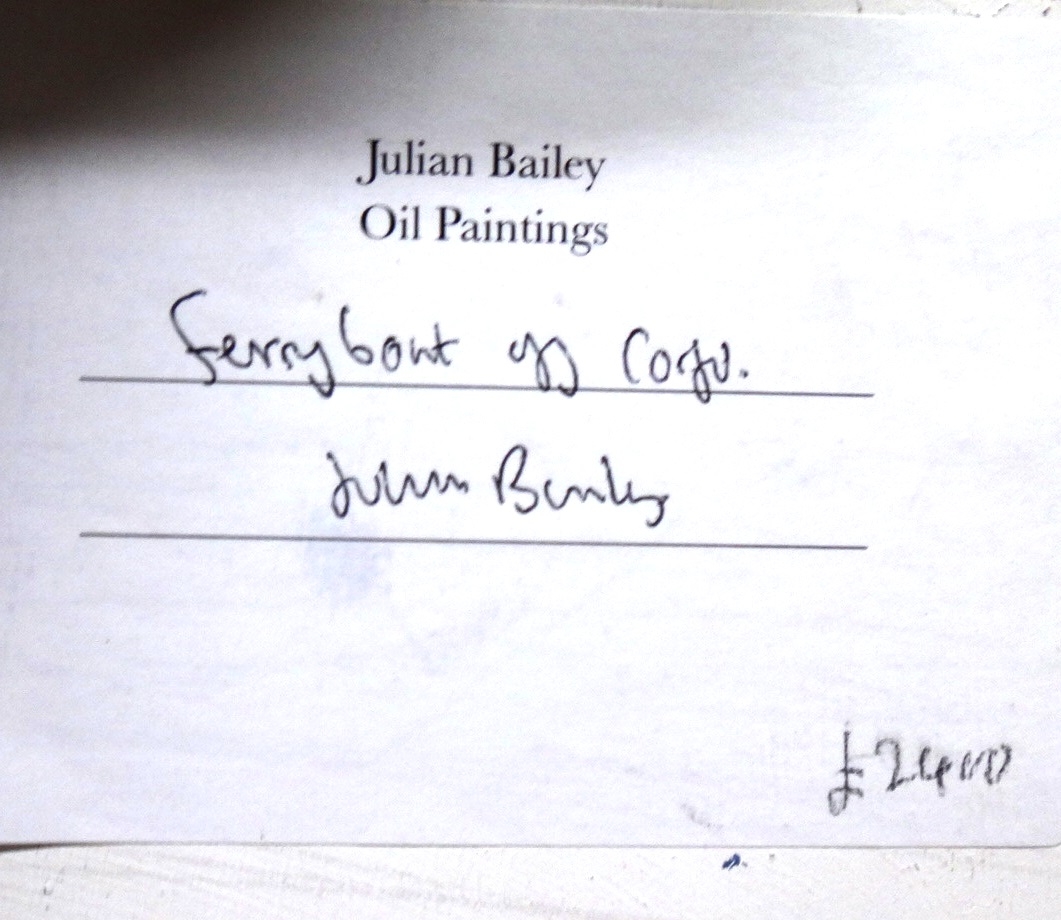 Julian Bailey
Oil Paintings
Ferryboat off Corfu.
Julian Bailey
£2400